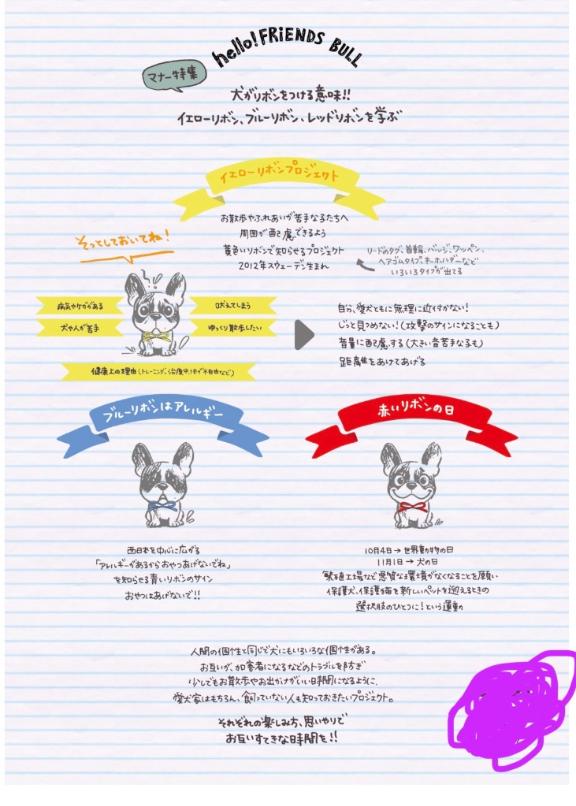 hello! FRIENDS BULL
マナー特集
犬がリボンをつける意味!!
イエローリボン、ブルーリボン、レッドリボンを学ぶ
イエローリボンプロジェクト
お散歩やふれあいが苦手な子たちへ
周囲が配慮できるよう
黄色いリボンで知らせるプロジェクト
2012年スウェーデン生まれ
リードのタグ、首輪、バッジ、ワッペン、
ヘアゴムタイプ、キーホルダーなど
いろいろタイプが出てる
そっとしておいてね!
病気やケガがある
吠えてしまう
犬や人が苦手
ゆっくり散歩したい
健康上の理由(トレーニング、治療中、体が不自由など)
自分、愛犬ともに無理に近付かない!
じっと見つめない!(攻撃のサインになることも)
音量に配慮する(大きい音苦手な子も)
距離をあけてあげる
ブルーリボンはアレルギー
赤いリボンの日
西日本を中心に広がる
「アレルギーがあるからおやつあげないでね」
を知らせる青いリボンのサイン
おやつはあげないで!!
10月4日→世界動物の日
11月1日→犬の日
繁殖工場など悪質な環境がなくなることを願い
保護犬、保護猫を新しいペットを迎えるときの
選択肢のひとつに!という運動
人間の個性と同じで犬にもいろいろな個性がある。
お互いが、加害者になるなどのトラブルを防ぎ
少しでもお散歩やお出かけがいい時間になるように、
愛犬家はもちろん、飼っていない人も知っておきたいプロジェクト。
それぞれの楽しみ方、思いやりで
お互いすてきな時間を!!